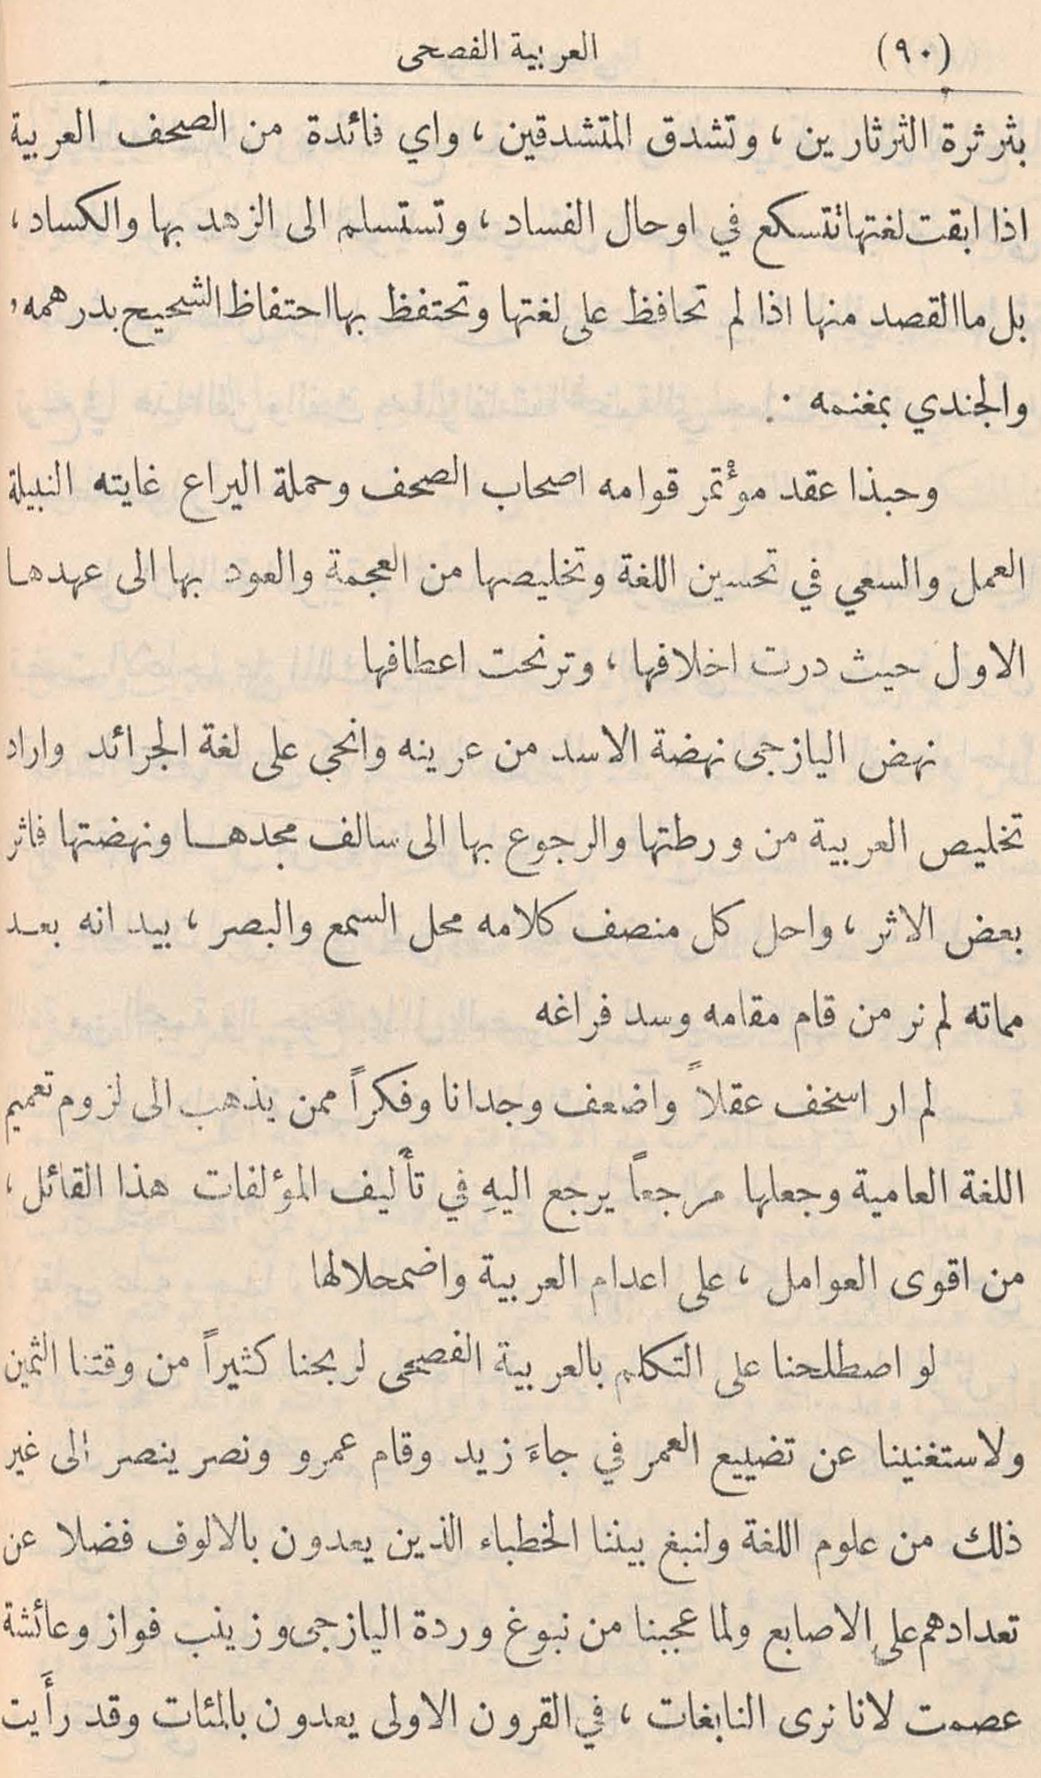 (٩٠) العربية الفصحى
بثرثرة الثرثارين ، وتشدق المتشدقين ، واي فائدة من الصحف العربية
اذا ابقت لغتها تتسكع في اوحال الفساد ، وتستسلم الى الزهد بها والكساد ،
بل ما القصد منها اذا لم تحافظ على لغتها وتحتفظ بها احتفاظ الشحيح بدرهمه ،
والجندي بمغنمه .
وحبذا عقد مؤتمر قوامه اصحاب الصحف وحملة اليراع غايته النبيلة
العمل والسعي في تحسين اللغة وتخليصها من العجمة والعود بها الى عهدها
الاول حيث درت اخلافها ، وترنحت اعطافها
نهض اليازجى نهضة الاسد من عرينه وانحى على لغة الجرائد واراد
تخليص العربية من ورطتها والرجوع بها الى سالف مجدها ونهضتها فاثر
بعض الاثر ، واحل كل منصف كلامه محل السمع والبصر ، بيد انه بعد
مماته لم نر من قام مقامه وسد فراغه
لم ار اسخف عقلاً واضعف وجدانا وفكراً ممن يذهب الى لزوم تعميم
اللغة العامية وجعلها مرجعاً يرجع اليهِ في تأليف المؤلفات هذا القائل ،
من اقوى العوامل ، على اعدام العربية واضمحلالها
لو اصطلحنا على التكلم بالعربية الفصحى لربحنا كثيراً من وقتنا الثمين
ولاستغنينا عن تضييع العمر في جاءَ زيد وقام عمرو ونصر ينصر الى غير
ذلك من علوم اللغة ولنبغ بيننا الخطباء الذين يعدون بالالوف فضلا عن
تعدادهم على الاصابع ولما عجبنا من نبوغ وردة اليازجى وزينب فواز وعائشة
عصمت لانا نرى النابغات ، في القرون الاولى يعدون بالمئات وقد رأَيت